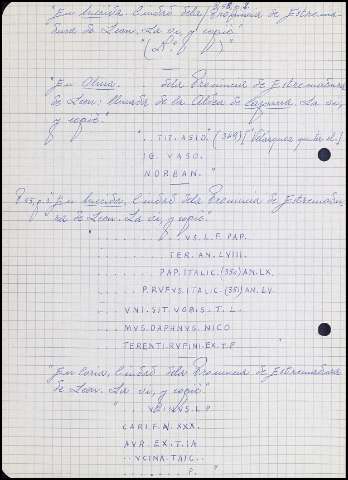 "En Merida, Ciudad dela Provincia de Estrema-
dura de Leon. La vi, y copié"
"(N.º
"En Oliva. dela Provincia de Estremadura
de Leon: llamada de la Aldea de La vi,
y copié."
"... TIT. ASIO." (349) [Velazquez
IG. VASO.
NORBAN. "
P. 25, "En Merida, Ciudad dela Provincia de Estremadu-
ra de Leon. La vi, y copié."
"............ VS. L. F. PAP.
........... TER. AN. LVIII.
.......... PAP. ITALIC. (350) AN. LX.
....... P. RVFVS. ITALIC. (351) AN. LV.
.... VNI. SIT. VOBIS. T. L.
.... MVS. DAPHNVS. NICO
TERENTI. RVFINI. EX. T. P. "
"En Coria, Ciudad dela Provincia de Estremadura
de Leon. La vi, y copié"
"... VDINVS. L. P
CARI. F. N. XXX.
AVR. EX. T. IA
..VCINA. TAIC..
........ P. "